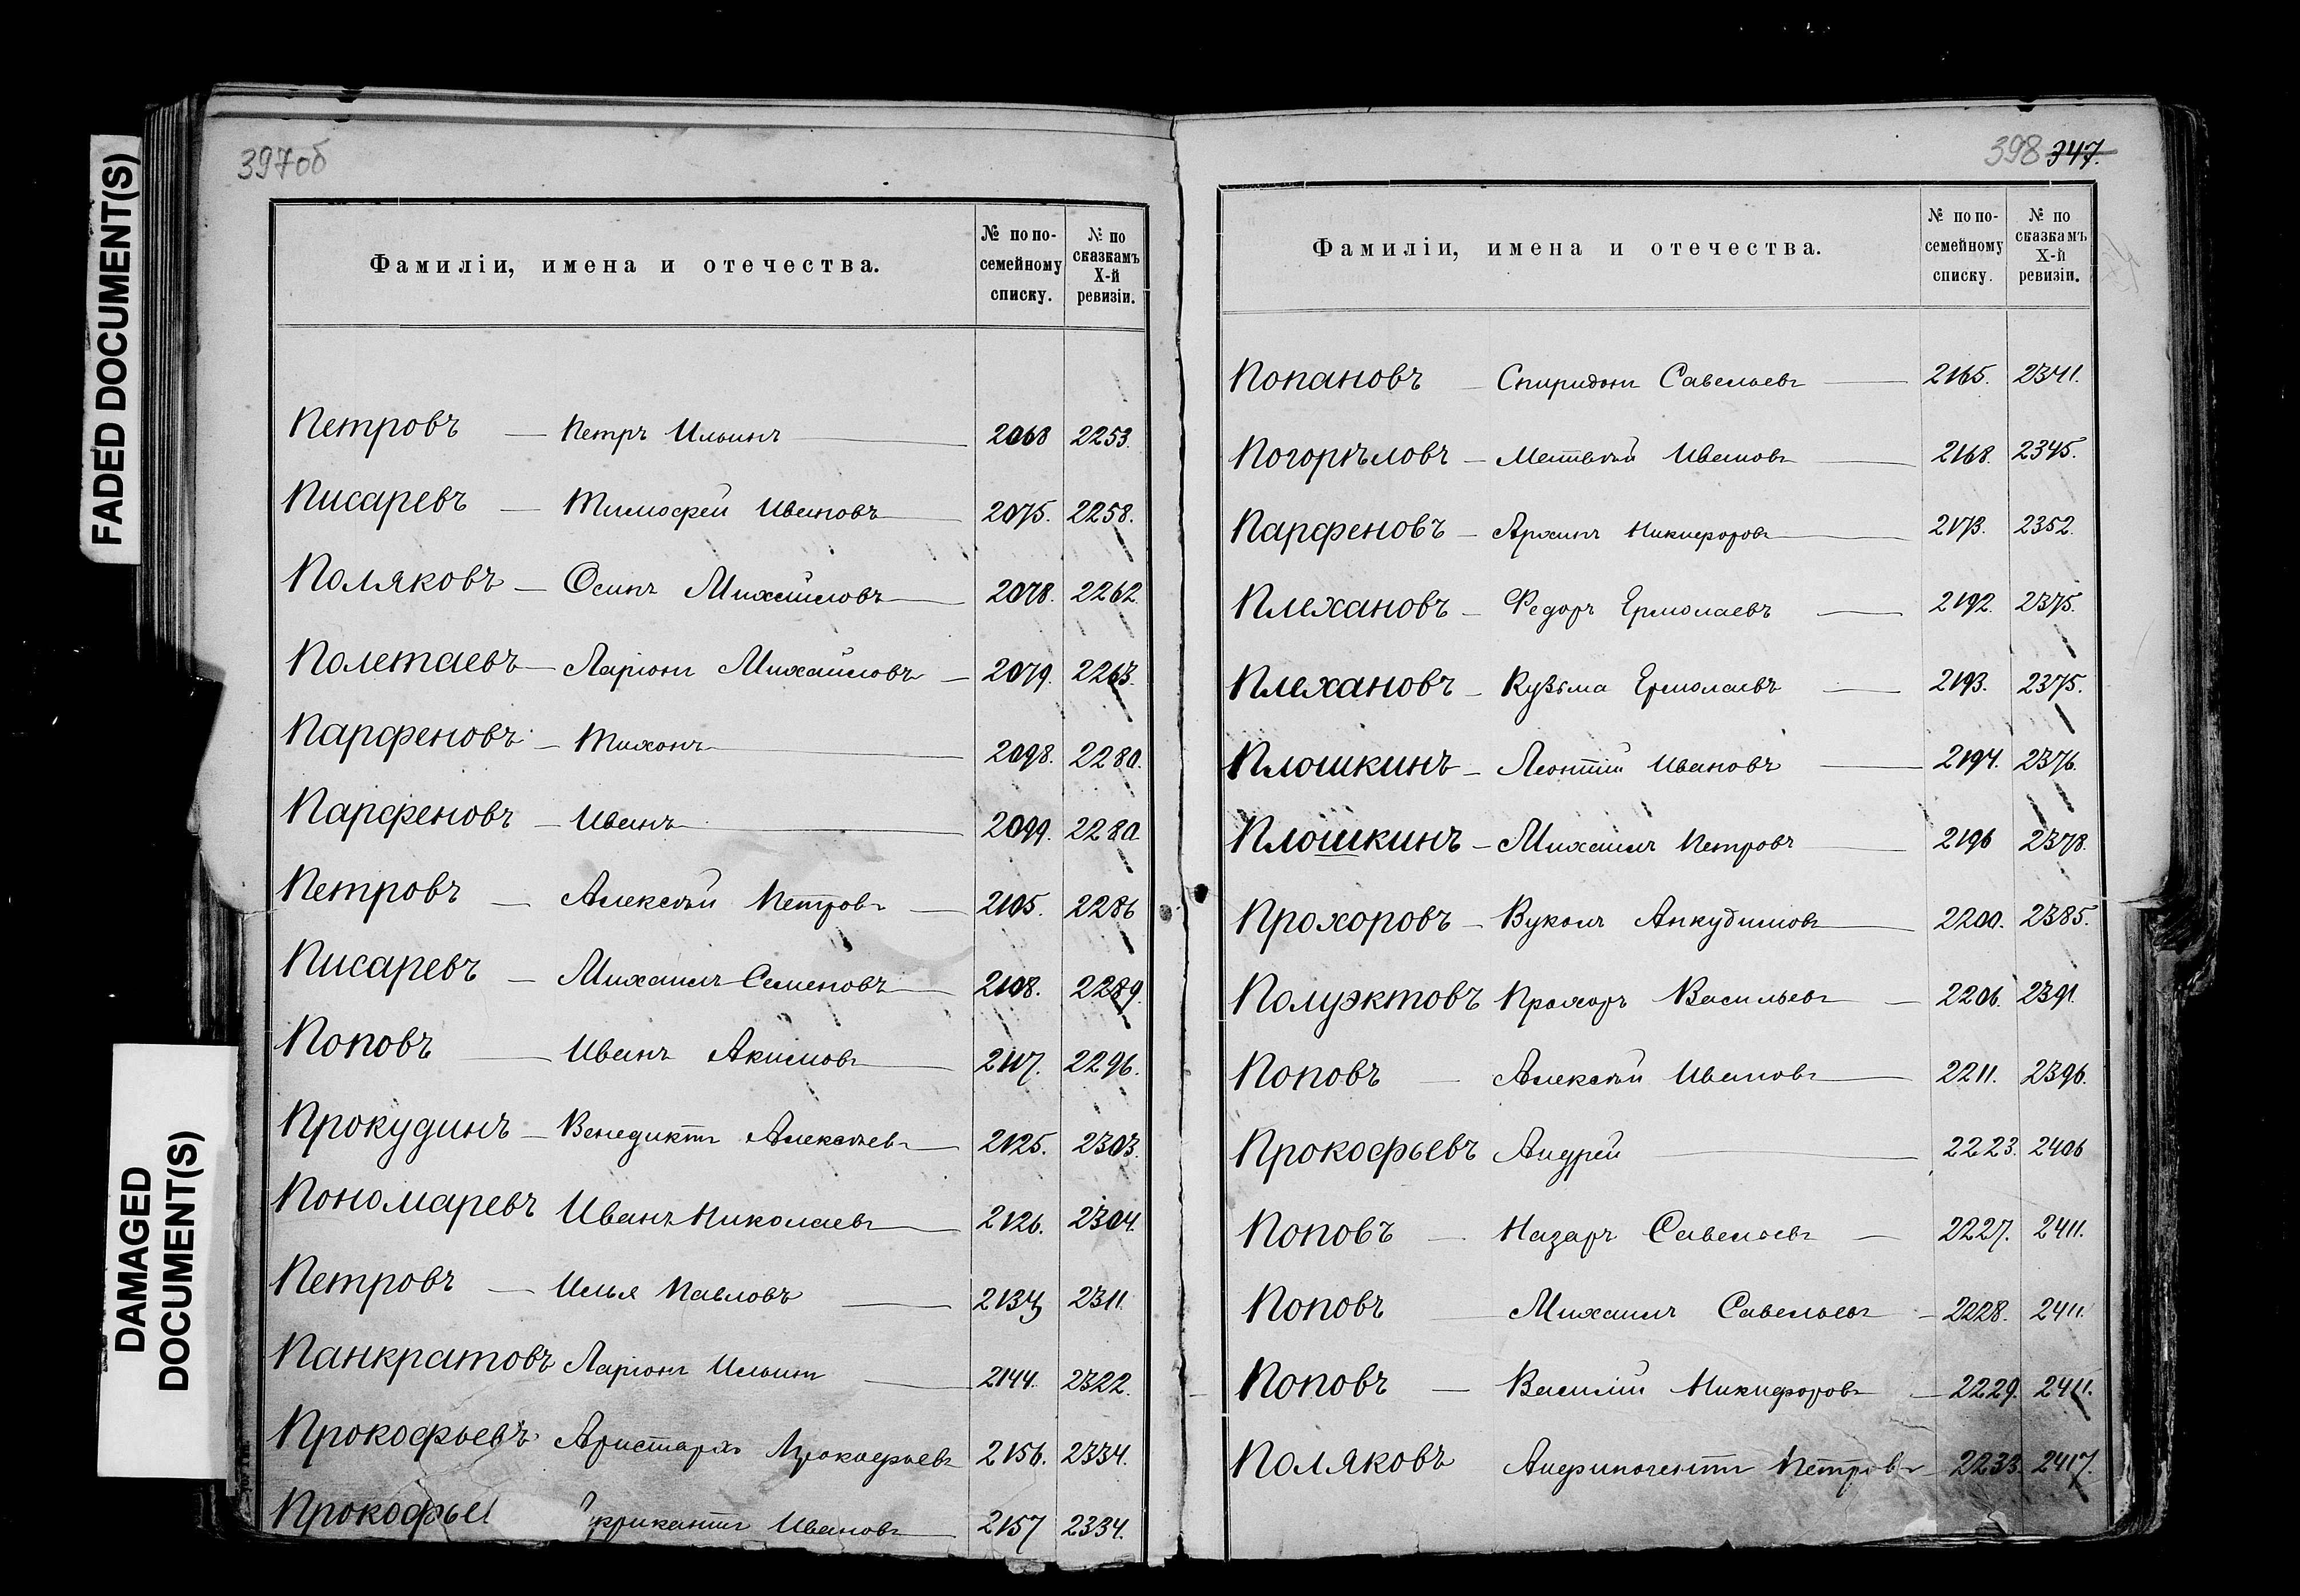 FADED DOCUMENT(S)
DAMAGED
DOCUMENT(S)
397об
Фамиліи, имена и отечества.
№ по по-
семейному
списку.
№ по
сказкамъ
X-й
ревизіи.
Петровъ — Петръ Ильинъ — 2068 2253.
Писаревъ — Тимофей Ивановъ — 2075. 2258.
Поляковъ — Осипъ Михайловъ — 2078. 2262.
Полетаевъ — Ларіонъ Михайловъ — 2079. 2263.
Парфеновъ — Тихонъ — 2098. 2280.
Парфеновъ — Иванъ — 2099. 2280
Петровъ — Алексѣй Петровъ — 2105. 2286
Писаревъ — Михаилъ Семеновъ — 2108. 2289.
Поповъ — Иванъ Акимовъ — 2117. 2296.
Прокудинъ — Венедиктъ Алексѣевъ — 2125. 2303.
Пономаревъ Иванъ Николаевъ — 2126. 2304.
Петровъ — Илья Павловъ — 2134 2311.
Панкратовъ Ларіонъ Ильинъ — 2144. 2322.
Прокофьевъ Аристархъ Прокофьевъ 2156. 2334.
Прокофье Иванов — 2157 2334.
398 347.
Фамиліи, имена и отечества.
№ по по-
семейному
списку.
№ по
сказкамъ
X-й
ревизіи.
Попановъ — Спиридонъ Савельевъ — 2165. 2341.
Погорѣловъ — Матвѣй Ивановъ — 2168. 2345.
Парфеновъ — Архипъ Никифоровъ — 2173. 2352.
Плехановъ — Федоръ Ермолаевъ — 2192. 2375.
Плехановъ — Кузьма Ермолаевъ — 2193. 2375.
Плошкинъ — Леонтій Ивановъ — 2194. 2376.
Плошкинъ — Михаилъ Петровъ — 2196 2378.
Прохоровъ — Вуколъ Анкудиновъ — 2200. 2385.
Полуэктовъ Прохоръ Васильевъ — 2206. 2391.
Поповъ — Алексѣй Ивановъ — 2211. 2396.
Прокофьевъ Андрей — 2223. 2406
Поповъ — Назаръ Савельевъ — 2227. 2411.
Поповъ — Михаилъ Савельевъ — 2228. 2411.
Поповъ — Василій Никифоровъ — 2229. 2411.
Поляковъ Анфиногентъ Петровъ — 2233. 2417.